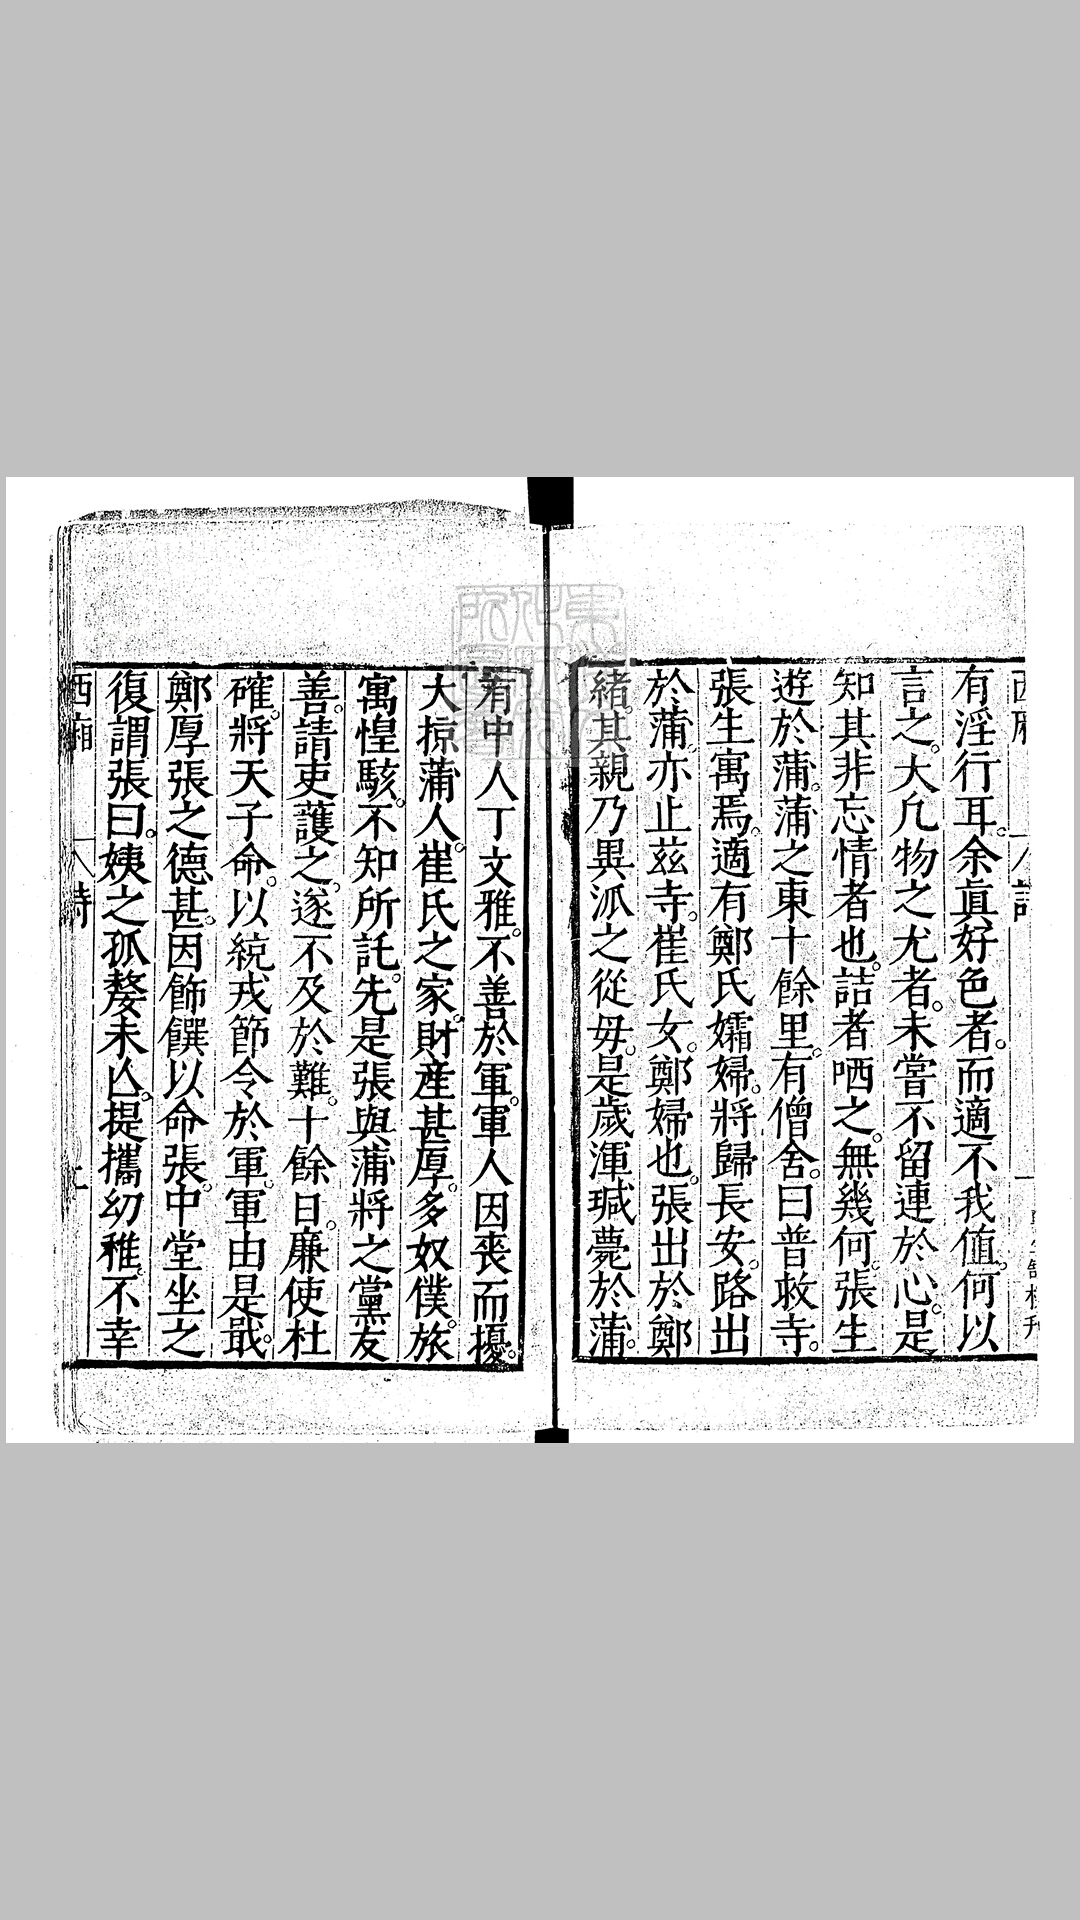 有淫行耳。余眞好色者。而適不我値。何以
言之。大凢物之尤者。未嘗不留連於心。是
知其非忘情者也。詰者哂之。無幾何。張生
遊於蒲。蒲之東十餘里。有僧舍。曰普救寺。
張生寓焉。適有鄭氏孀婦。將歸長安。路出
於蒲。亦止茲寺。崔氏女。鄭婦也。張出於鄭
緒。其親乃異派之從母。是歲渾瑊薨於蒲。
有中人丁文雅。不善於軍。軍人因喪而擾。
大掠蒲人。崔氏之家。財産甚厚。多奴僕。旅
寓惶駭。不知所託。先是張與蒲將之黨友
善。請吏護之。遂不及於難。十餘日。廉使杜
確。將天子命。以綂戎節令於軍。軍由是戢。
鄭厚張之德甚。因飾饌以命張。中堂坐之
復謂張曰。姨之孤嫠未亾。提攜幼稚。不幸
西廂